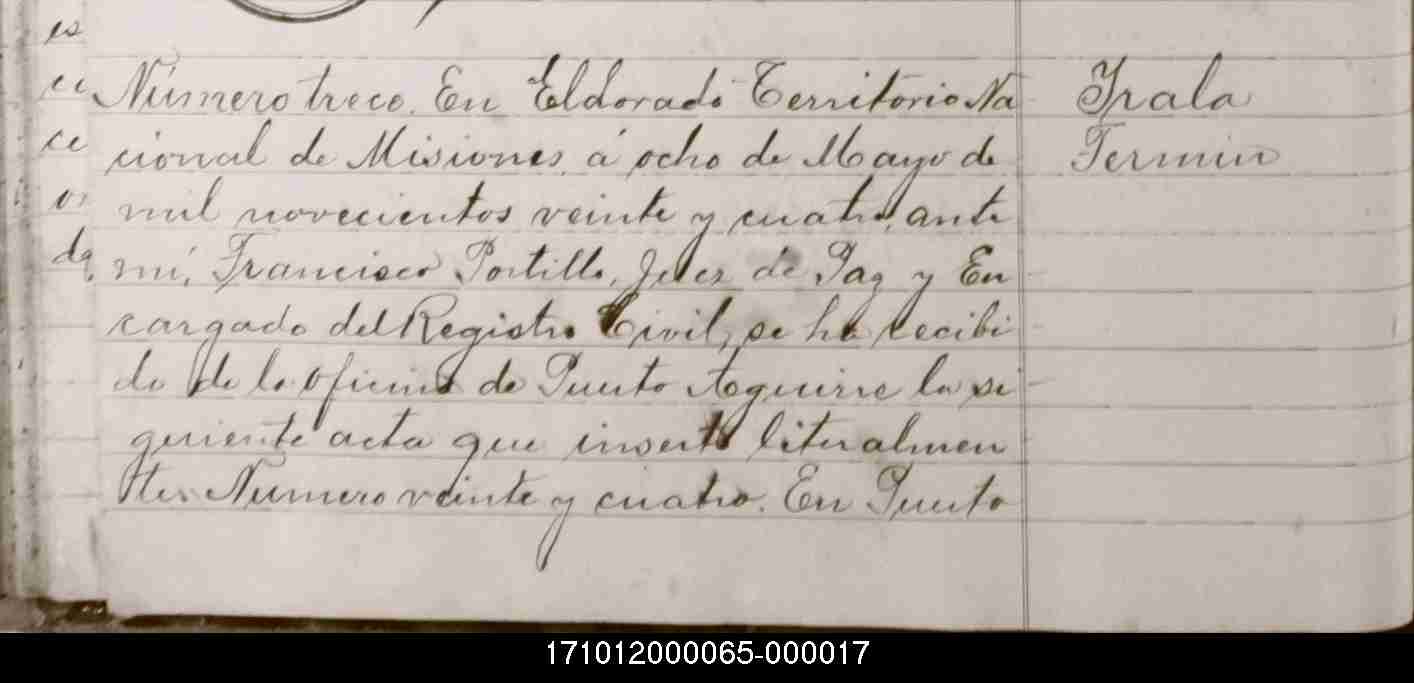 es
ci
ce
or
da,
Número trece. En Eldorado Territorio Na
cional de Misiones, á ocho de Mayo de
mil novecientos veinte y cuatro, ante
mí, Francisco Portillo, Juez de Paz y En
cargado del Registro Civil, se ha recibi
do de la oficina de Puerto Aguirre la si
guiente acta que inserto literalmen
te: Numero veinte y cuatro. En Puerto
Irala
Fermin
171012000065-000017